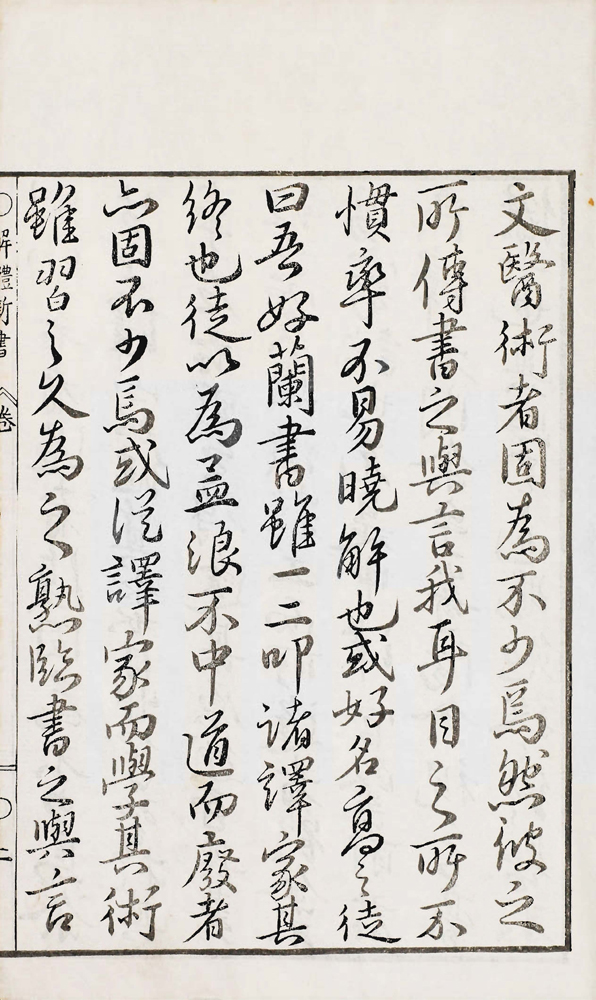 文醫術者固為不少焉然彼之
所傳書之與言我耳目之所不
慣率不易曉解也或好名高之徒
曰吾好蘭書雖一二叩諸譯家其
終也徒以為孟浪不中道而廢者
亦固不少焉或從譯家而學其術
雖習之久為之熟臨書之與言
解體新書 卷
二